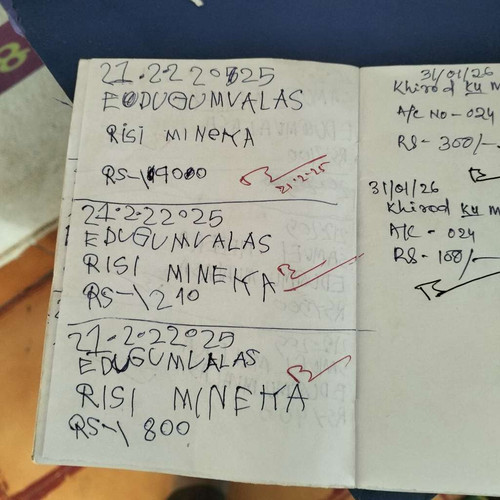 21.2.22025
EDUGUMVALAS
RISI MINEKA
RS-\14000
21-2-25
21.2.22025
EDUGUMVALAS
RISI MINEKA
RS-\210
21.2.22025
EDUGUMVALAS
RISI MINEKA
RS-\800
31/01/26
Khirod Ku M
A/C No - 024
RS - 300/-
31/01/26
Khirod Ku m
A/C - 024
RS - 100/-
8